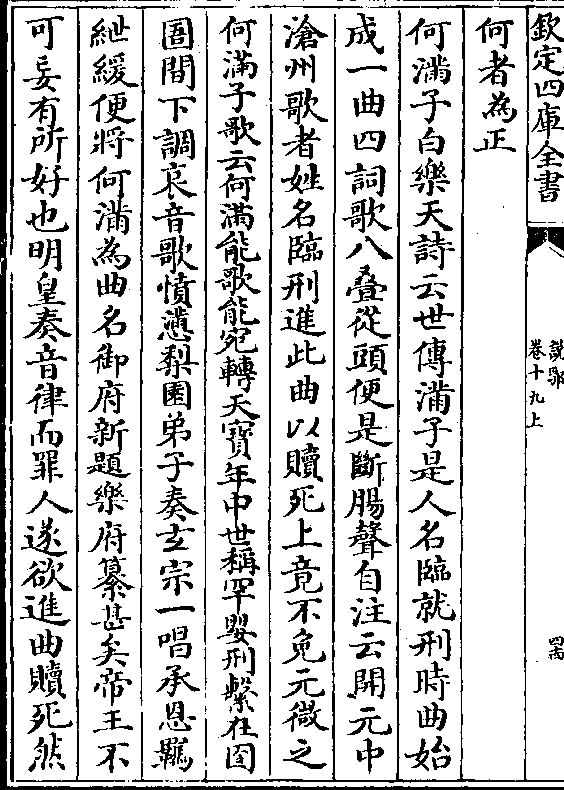 欽定四庫全書
說郛
卷十九上
四十
何者為正
何滿子白樂天詩云世傳滿子是人名臨就刑時曲始
成一曲四詞歌八叠從頭便是斷腸聲自注云開元中
滄州歌者姓名臨刑進此曲以贖死上竟不免元微之
何滿子歌云何滿能歌能宛轉天寶年中世稱罕嬰刑繫在囹
圄間下調哀音歌憤懣梨園弟子奏玄宗一唱承恩羈
紲緩便將何滿為曲名御府新題樂府纂甚矣帝王不
可妄有所好也明皇奏音律而罪人遂欲進曲贖死然